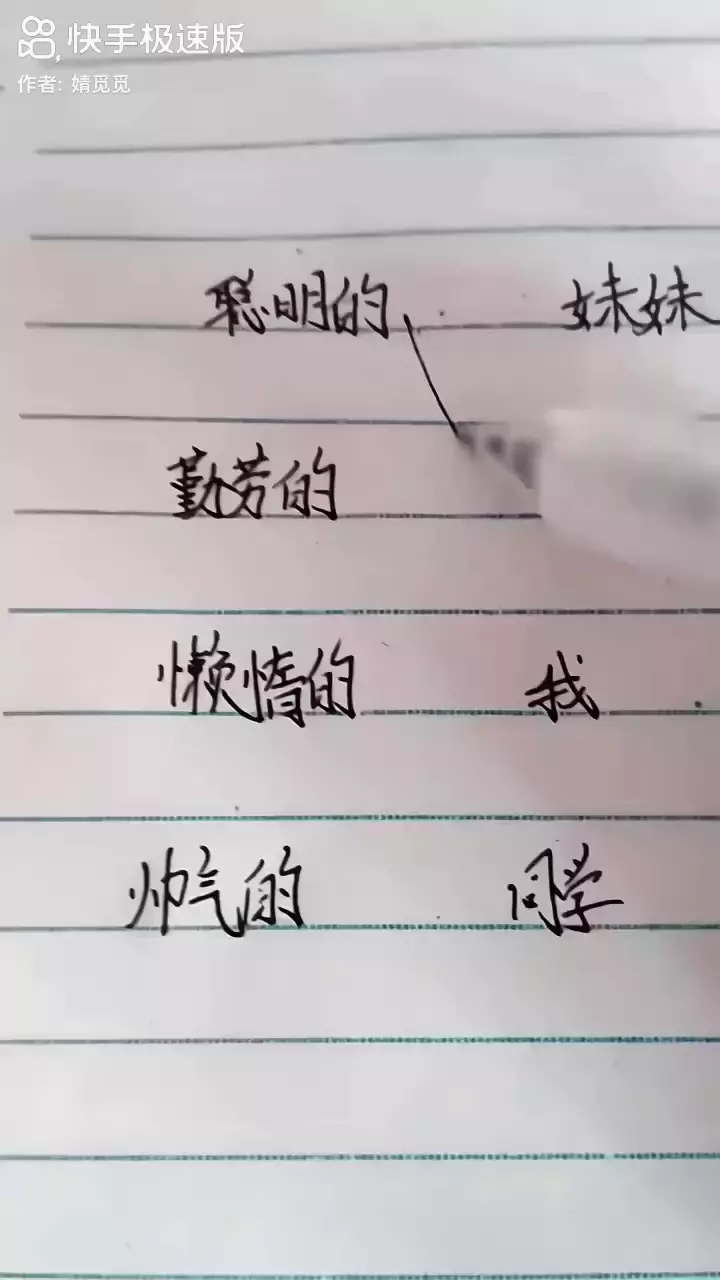 快手极速版
作者: 婧觅觅
聪明的 妹妹
勤劳的
懒惰的 我
帅气的 同学